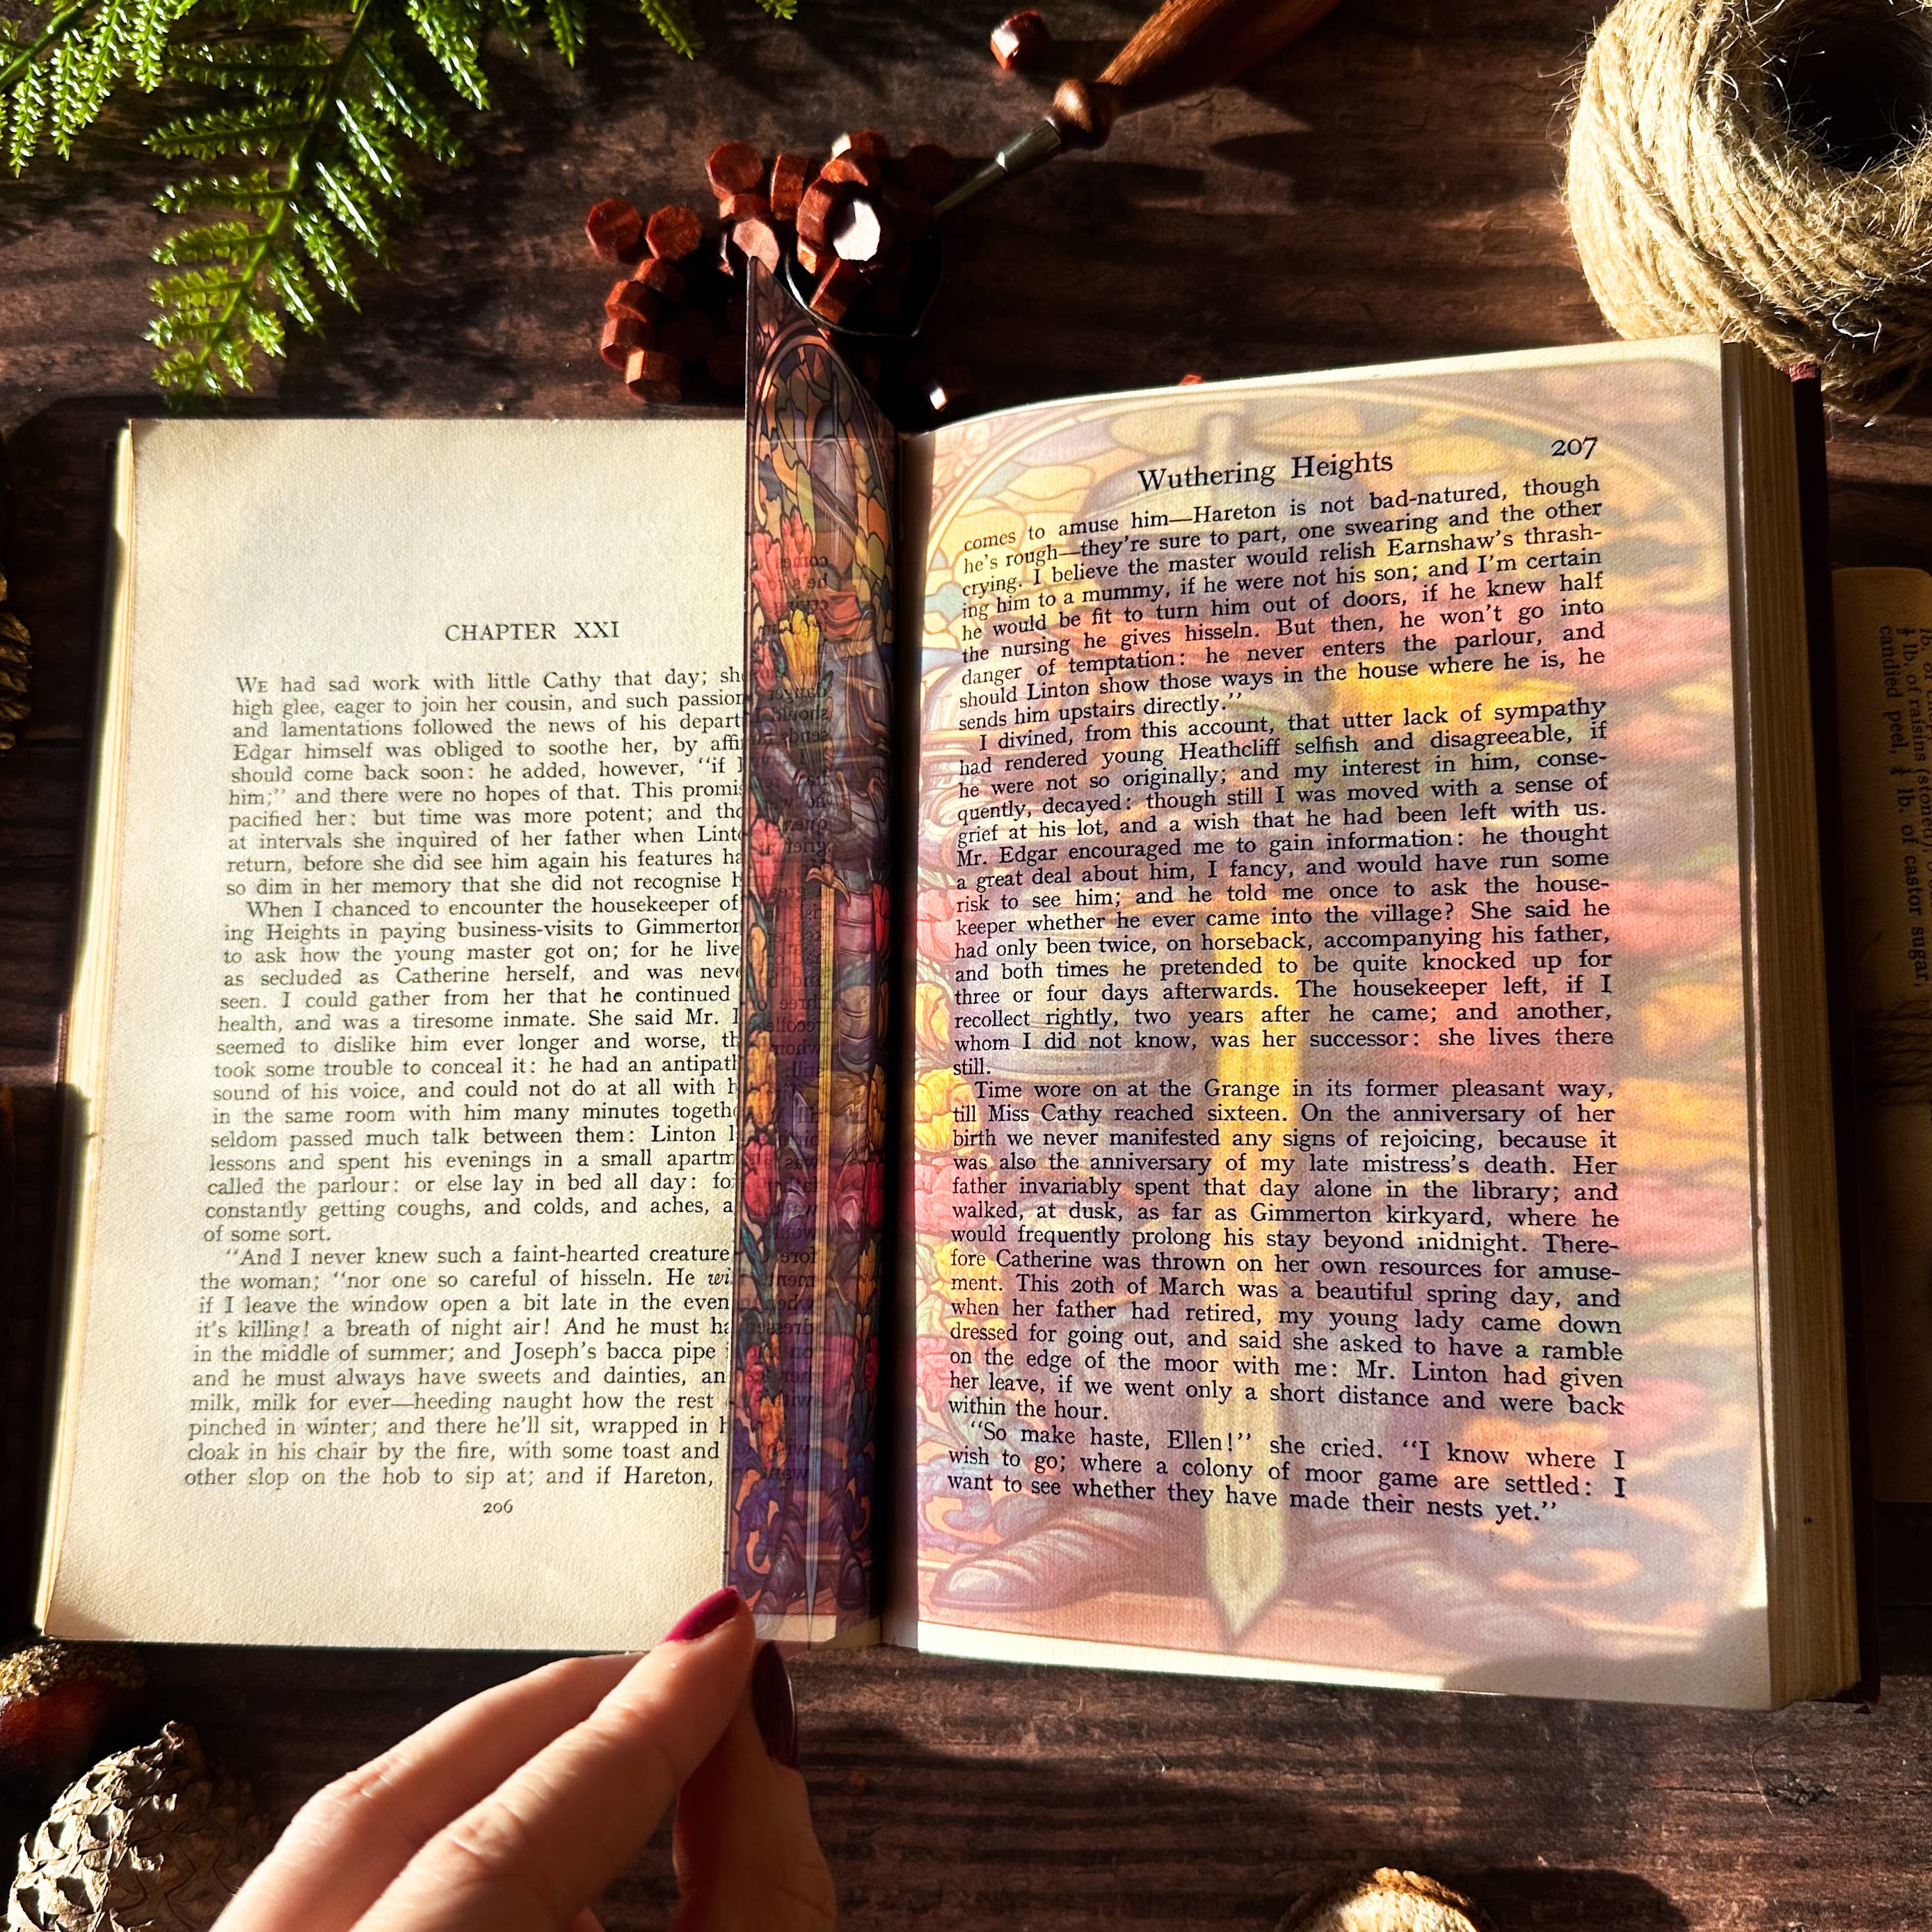 CHAPTER XXI
WE had sad work with little Cathy that day;
high glee, eager to join her cousin, and such
and lamentations followed the news of his
Edgar himself was obliged to soothe her, by
should come back soon: he added, however, “if
him;” and there were no hopes of that. This
pacified her: but time was more potent; and
at intervals she inquired of her father when
return, before she did see him again his features
so dim in her memory that she did not recognise
When I chanced to encounter the housekeeper of
ing Heights in paying business-visits to
to ask how the young master got on; for he
as secluded as Catherine herself, and was
seen. I could gather from her that he continued
health, and was a tiresome inmate. She said Mr.
seemed to dislike him ever longer and worse,
took some trouble to conceal it: he had an
sound of his voice, and could not do at all with
in the same room with him many minutes
seldom passed much talk between them: Linton
lessons and spent his evenings in a small
called the parlour: or else lay in bed all day:
constantly getting coughs, and colds, and aches,
of some sort.
“And I never knew such a faint-hearted creature
the woman; “nor one so careful of hisseln. He
if I leave the window open a bit late in the
it's killing! a breath of night air! And he must
in the middle of summer; and Joseph's bacca pipe
and he must always have sweets and dainties,
milk, milk for ever—heeding naught how the rest
pinched in winter; and there he'll sit, wrapped in
cloak in his chair by the fire, with some toast and
other slop on the hob to sip at; and if Hareton,
206
207
Wuthering Heights
comes to amuse him—Hareton is not bad-natured, though
he's rough—they're sure to part, one swearing and the other
crying. I believe the master would relish Earnshaw's thrash-
ing him to a mummy, if he were not his son; and I'm certain
he would be fit to turn him out of doors, if he knew half
the nursing he gives hisseln. But then, he won't go into
danger of temptation: he never enters the parlour, and
should Linton show those ways in the house where he is, he
sends him upstairs directly.”
I divined, from this account, that utter lack of sympathy
had rendered young Heathcliff selfish and disagreeable, if
he were not so originally; and my interest in him, conse-
quently, decayed: though still I was moved with a sense of
grief at his lot, and a wish that he had been left with us.
Mr. Edgar encouraged me to gain information: he thought
a great deal about him, I fancy, and would have run some
risk to see him; and he told me once to ask the house-
keeper whether he ever came into the village? She said he
had only been twice, on horseback, accompanying his father,
and both times he pretended to be quite knocked up for
three or four days afterwards. The housekeeper left, if I
recollect rightly, two years after he came; and another,
whom I did not know, was her successor: she lives there
still.
Time wore on at the Grange in its former pleasant way,
till Miss Cathy reached sixteen. On the anniversary of her
birth we never manifested any signs of rejoicing, because it
was also the anniversary of my late mistress's death. Her
father invariably spent that day alone in the library; and
walked, at dusk, as far as Gimmerton kirkyard, where he
would frequently prolong his stay beyond midnight. There-
fore Catherine was thrown on her own resources for amuse-
ment. This 20th of March was a beautiful spring day, and
when her father had retired, my young lady came down
dressed for going out, and said she asked to have a ramble
on the edge of the moor with me: Mr. Linton had given
her leave, if we went only a short distance and were back
within the hour.
“So make haste, Ellen!” she cried. “I know where I
wish to go; where a colony of moor game are settled: I
want to see whether they have made their nests yet.”
lb. of raisins (stoned),
candied peel, lb. of castor sugar,